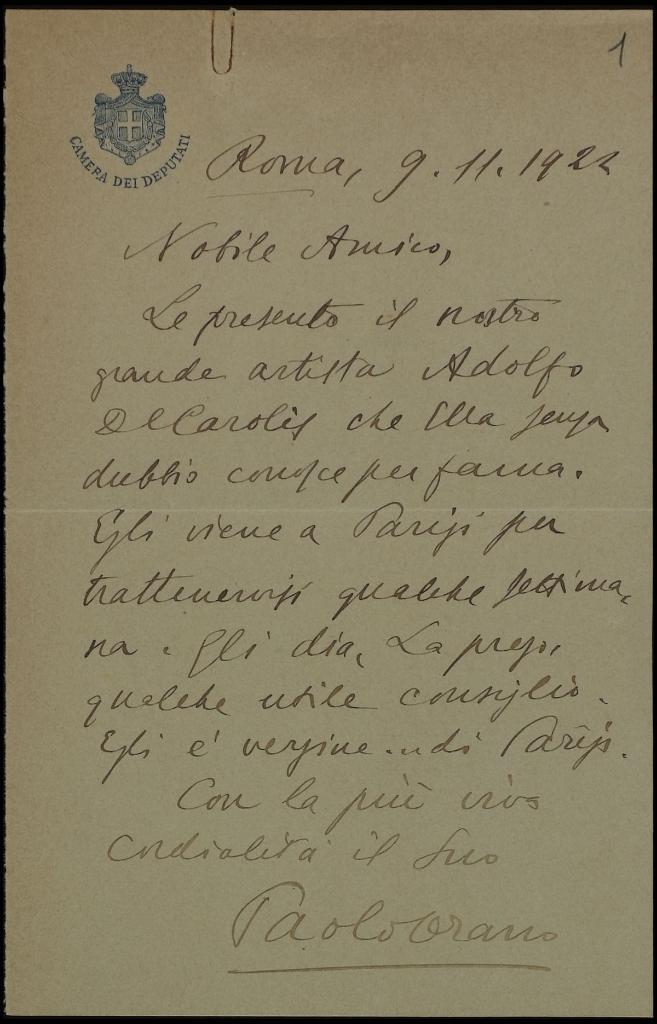 1
CAMERA DEI DEPUTATI
Roma, 9.11.1922
Nobile Amico,
Le presento il nostro
grande artista Adolfo
De Carolis che Ella senza
dubbio conosce per fama.
Egli viene a Parigi per
trattenervisi qualche settima-
na. Gli dia, La prego,
qualche utile consiglio.
Egli è vergine...di Parigi.
Con la più viva
cordialità il Suo
Paolo Orano